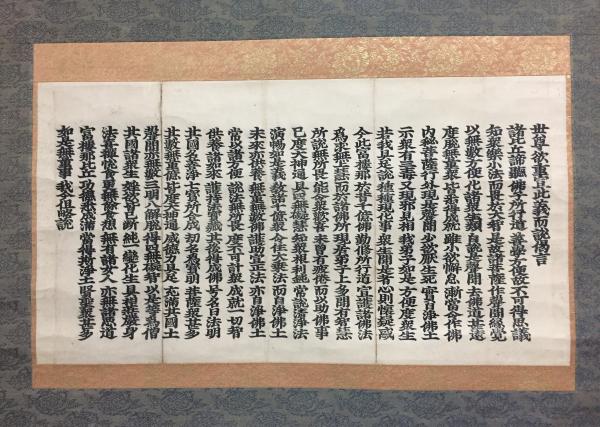 世尊欲重宣此義而說偈言
諸比丘諦聽佛子所行道善學方便故不可得思議
知眾樂小法而畏於大智是故諸菩薩作聲聞緣覺
以無數方便化諸眾生類自說是聲聞去佛道甚遠
度脫無量眾皆悉得成就雖小欲懈怠漸當令作佛
內祕菩薩行外現是聲聞少欲厭生死實自淨佛土
示眾有三毒又現邪見相我弟子如是方便度眾生
若我具足說種種現化事眾生聞是者心則懷疑惑
今此富樓那於昔千億佛勤修所行道宣護諸佛法
為求無上慧而於諸佛所現居弟子上多聞有智慧
所說無所畏能令眾歡喜未曾有疲倦而以助佛事
已度大神通具四無礙慧知眾根利鈍常說清淨法
演暢如是義教諸千億眾令住大乘法而自淨佛土
未來亦供養無量無數佛護助宣正法亦自淨佛土
常以諸方便說法無所畏度不可計眾成就一切智
供養諸如來護持法寶藏其後得成佛號名曰法明
其國名善淨七寶所合成劫名為寶明菩薩眾甚多
其數無量億皆度大神通威德力具足充滿其國土
聲聞亦無數三明八解脫得四無礙智以是等為僧
其國諸眾生婬欲皆已斷純一變化生具相莊嚴身
法喜禪悅食更無餘食想無有諸女人亦無諸惡道
富樓那比丘功德悉成滿當得斯淨土賢聖眾甚多
如是無量事我今但略說